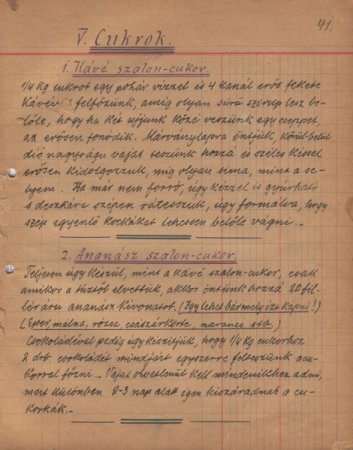 41.
V. Cukrok.
1. Kávé szalon-cukor.
1/4 kg cukrot egy pohár vízzel és 4 kanál erős fekete
kávéval felfőzünk, amíg olyan sűrű szirup lesz be-
lőle, hogy ha két ujjunk közé veszünk egy cseppet,
az erősen fonódik. Márványlapra öntjük, körülbelül
dió nagyságú vajat teszünk hozzá és széles késsel
erősen kidolgozzuk, míg olyan sima, mint a se-
lyem. Ha már nem forró, úgy kézzel is gyúrható
s deszkára szépen rátesszük, úgy formálva, hogy
szép egyenlő kockákat lehessen belőle vágni.
2. Ananász szalon-cukor.
Teljesen úgy készül, mint a kávé szalon-cukor, csak
amikor a tűztől elvettük, akkor öntünk hozzá 20 fil-
lér áru ananász kivonatot. (Így lehet bármely ízt kapni!)
(Eper, málna, rózsa, császárkörte, narancs stb.)
Csokoládéval pedig úgy készítjük, hogy 1/4 kg cukorhoz
2 drb. csokoládét mindjárt egyszerre felteszünk a cu-
korral főzni. Vajat okvetlenül kell mindenikhez adni,
mert különben 2-3 nap alatt igen kiszáradnak a cu-
korkák.